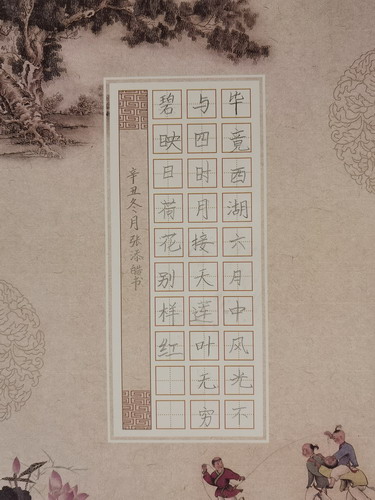 毕竟西湖六月中风光不
与四时月接天莲叶无穷
碧映日荷花别样红
辛丑冬月张添书